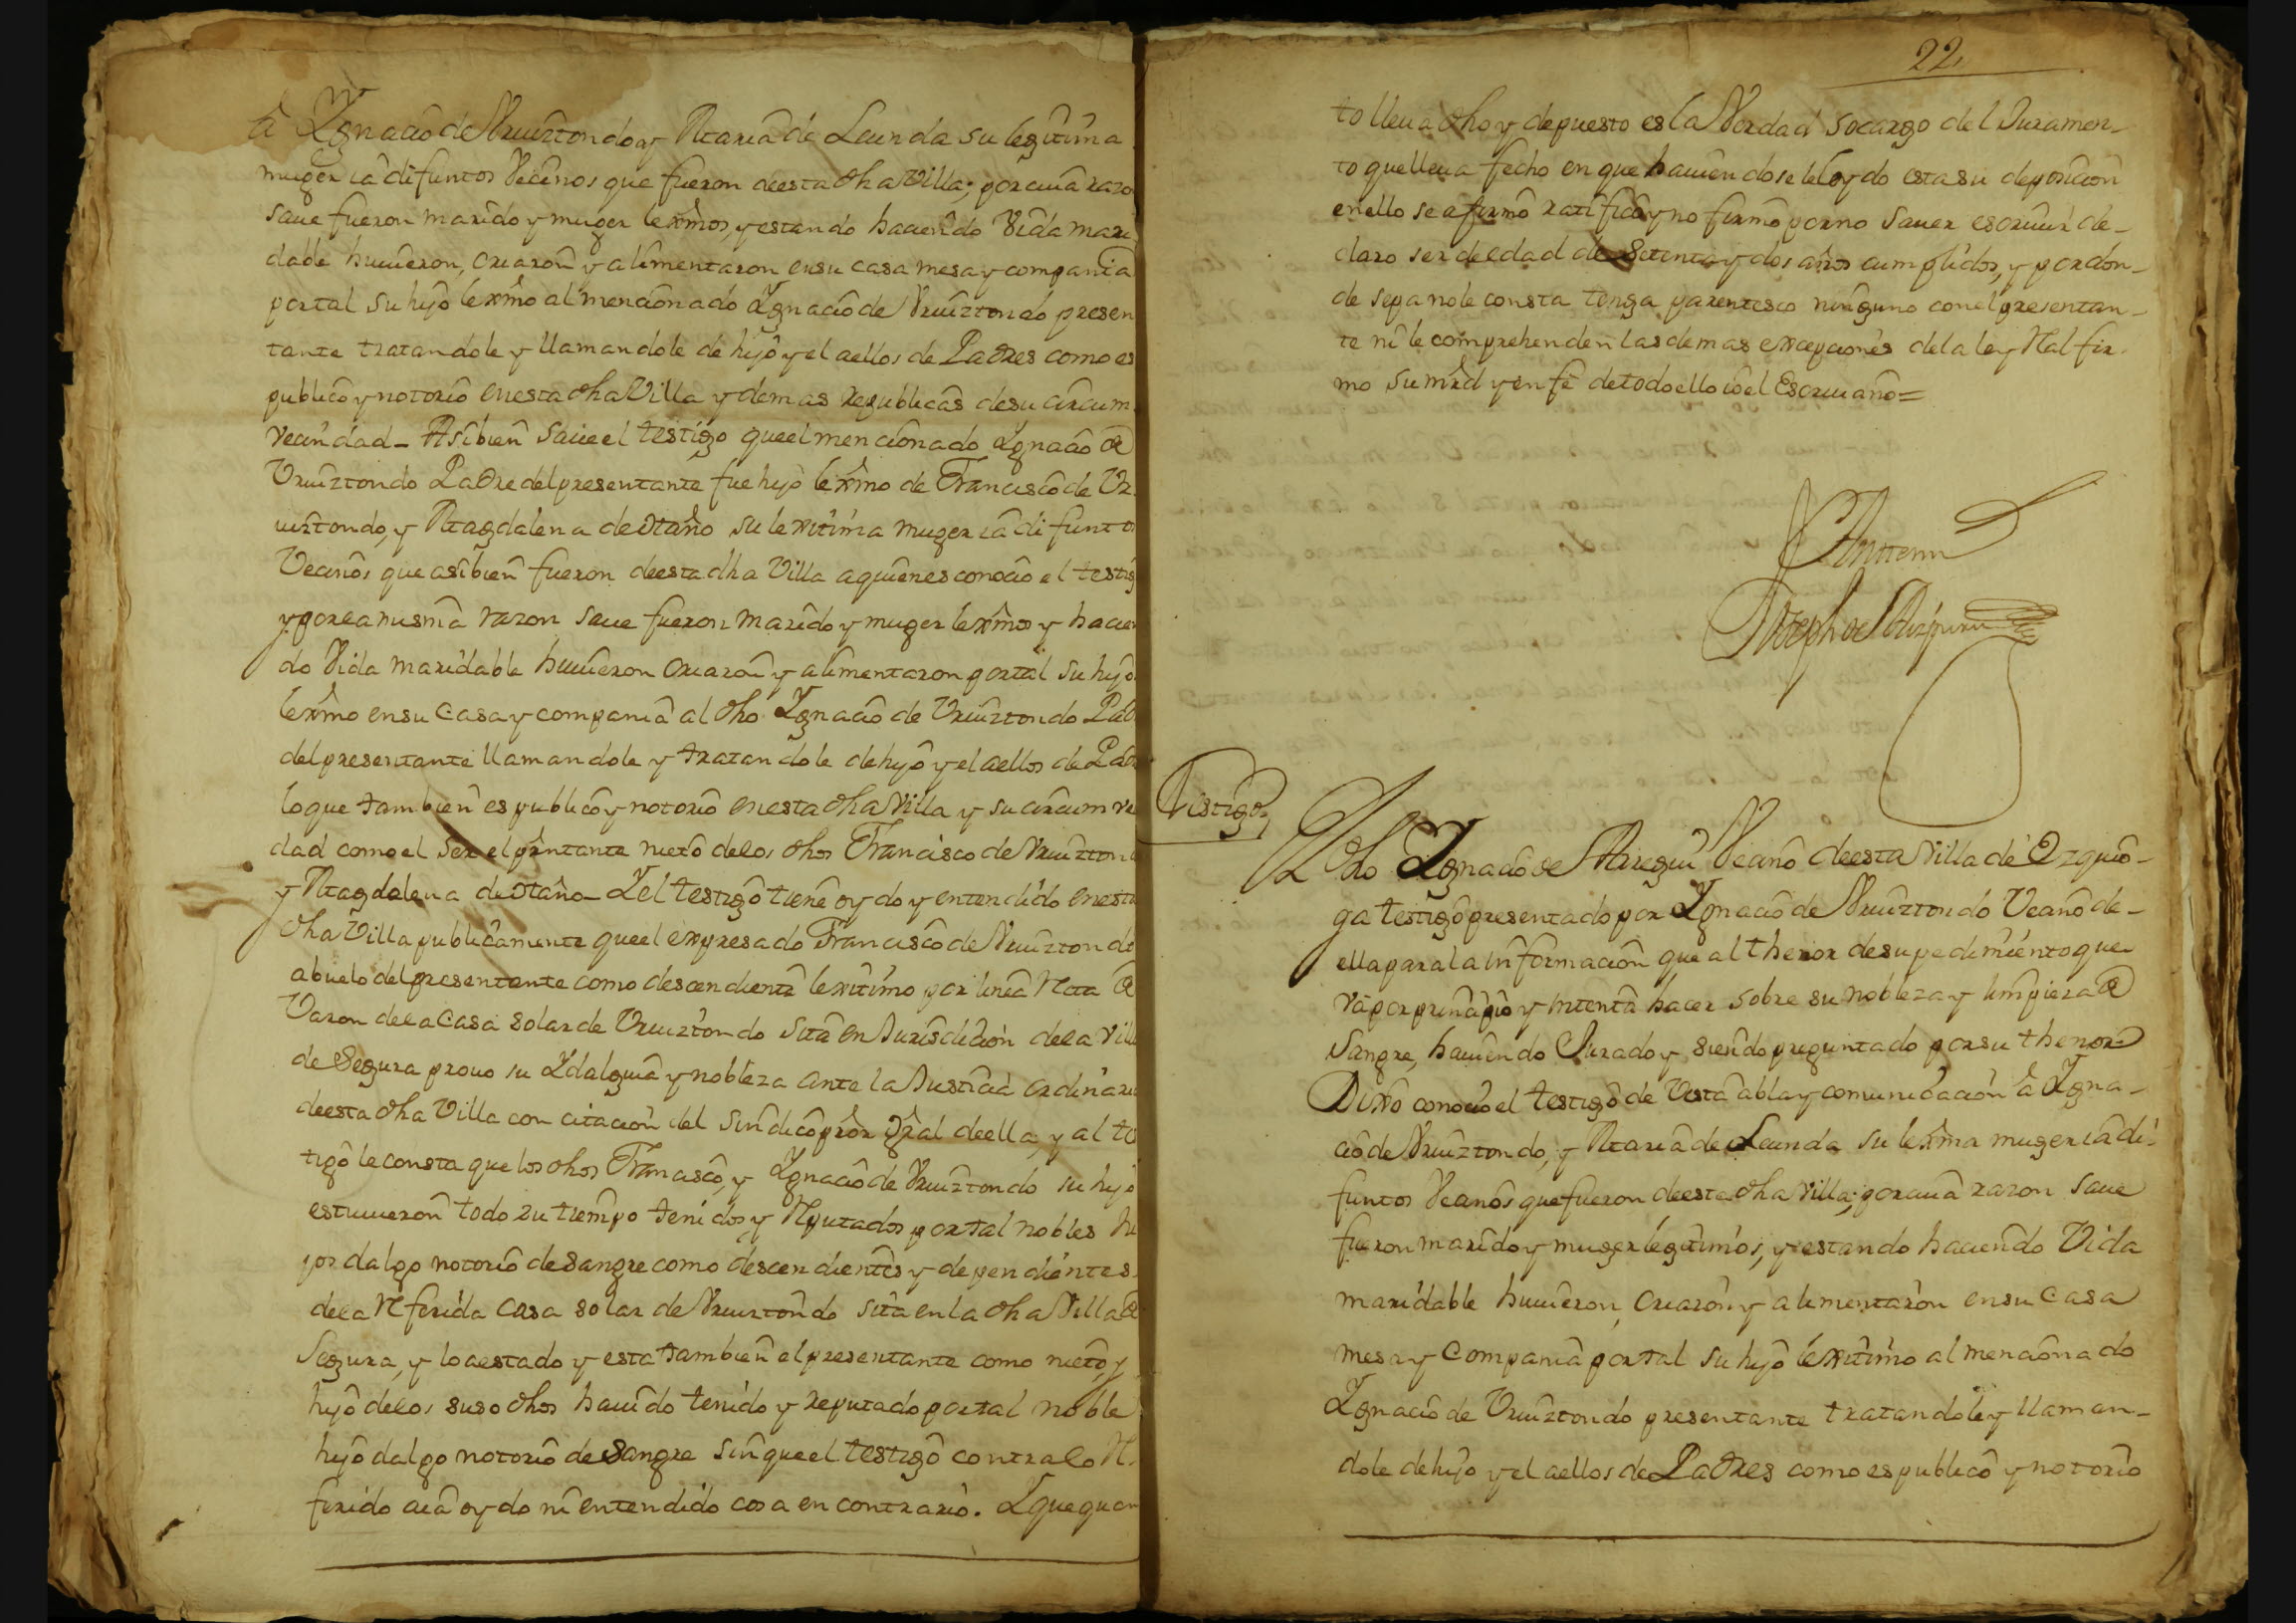 â Ygnacio de Vruiztondo y Maria de Lcunda su legitima
muger ia difuntos Vecinos que fueron deesta dha Villa; por cuia razo
saue fueron marido y muger lexmos, y estando haciendo Vida mari
dable huuieron, criaron y alimentaron en su casa mesa y compania
por tal su hijo lexmo al mencionado Ygnacio de Vruiztondo presen
tante tratandole y llamandole de hijo y el aellos de Padres como es
publico y notorio en esta dha Villa y demas republicas de su circum
vecindad - Asi bien saue el testigo que el mencionado Ygnacio de
Vruiztondo Padre del presentante fue hijo lexmo de Francisco de Vr
uiztondo, y Magdalena de Otaño su lexitima muger ia difunto
Vecinos que asi bien fueron deesta dha Villa a quienes conocio el testig
y por la misma razon saue fueron marido y muger lexmos y hacien
do Vida maridable huuieron criaron y alimentaron por tal su hijo
lexmo en su casa y compania al dho Ygnacio de Vruiztondo Pad
del presentante llamandole y tratandole de hijo y el aellos de Pad
lo que tambien es publico y notorio en esta dha Villa y su circum ve
dad como el ser el prntante nieto de los dhos Francisco de Vruizton
y Magdalena de Otaño - Y el testigo tiene oydo y entendido en esta
dha Villa publicamente que el expresado Francisco de Vruiztondo
abuelo del presentante como descendiente lexitimo por linea Rta de
Varon de la casa solar de Vruiztondo sita en Jurisdicion de la Vill
de Segura prouo su Ydalguia y nobleza ante la Justicia ordinari
deesta dha Villa con citacion del sindico pror gral deella, y al te
tigo le consta que los dhos Francisco, y Ygnacio de Vruiztondo su hijo
estuuieron todo su tiempo tenidos y Reputados por tal nobles hi
jos dalgo notorio de sangre como descendientes y dependientes
de la Referida casa solar de Vruiztondo sita en la dha Villa de
Segura, y lo aestado y esta tambien el presentante como nieto, y
hijo de los suso dhos hauido tenido y reputado por tal noble
hijo dalgo notorio de sangre sin que el testigo contra lo Re
ferido aia oydo ni entendido cosa en contrario. Y que quan
22
to lleua dho y depuesto es la Verdad so cargo del Juramen-
to que lleua fecho en que hauiendosele leydo esta su deposicion
en ello se afirmo ratifico y no firmo por no sauer escriuir de-
claro ser de edad de setenta y dos años cumplidos, y por don-
de sepa no le consta tenga parentesco ninguno con el presentan-
te ni le comprehenden las demas excepciones de la ley Real fir-
mo su mrd y en fe de todo ello io el Escriuano =
Antemi
Joseph de Aizpuru
Testigo
El dho Ygnacio de Arregui Vecino deesta Villa de Ozquio-
ga testigo presentado por Ygnacio de Vruiztondo Vecino de-
ella para la informacion que al thenor de su pedimiento que
va por principio y intenta hacer sobre su nobleza y limpieza de
sangre, hauiendo Jurado y siendo preguntado por su thenor
Dixo conocio el testigo de Vista abla y comunicacion â Ygna-
cio de Vruiztondo, y Maria de Lcunda su lexma muger ia di-
funtos Vecinos que fueron deesta dha Villa; por cuia razon saue
fueron marido y muger legitimos, y estando haciendo Vida
maridable huuieron, criaron y alimentaron en su casa
mesa y compania por tal su hijo lexitimo al mencionado
Ygnacio de Vruiztondo presentante tratandole y llaman-
dole de hijo y el aellos de Padres como es publico y notorio